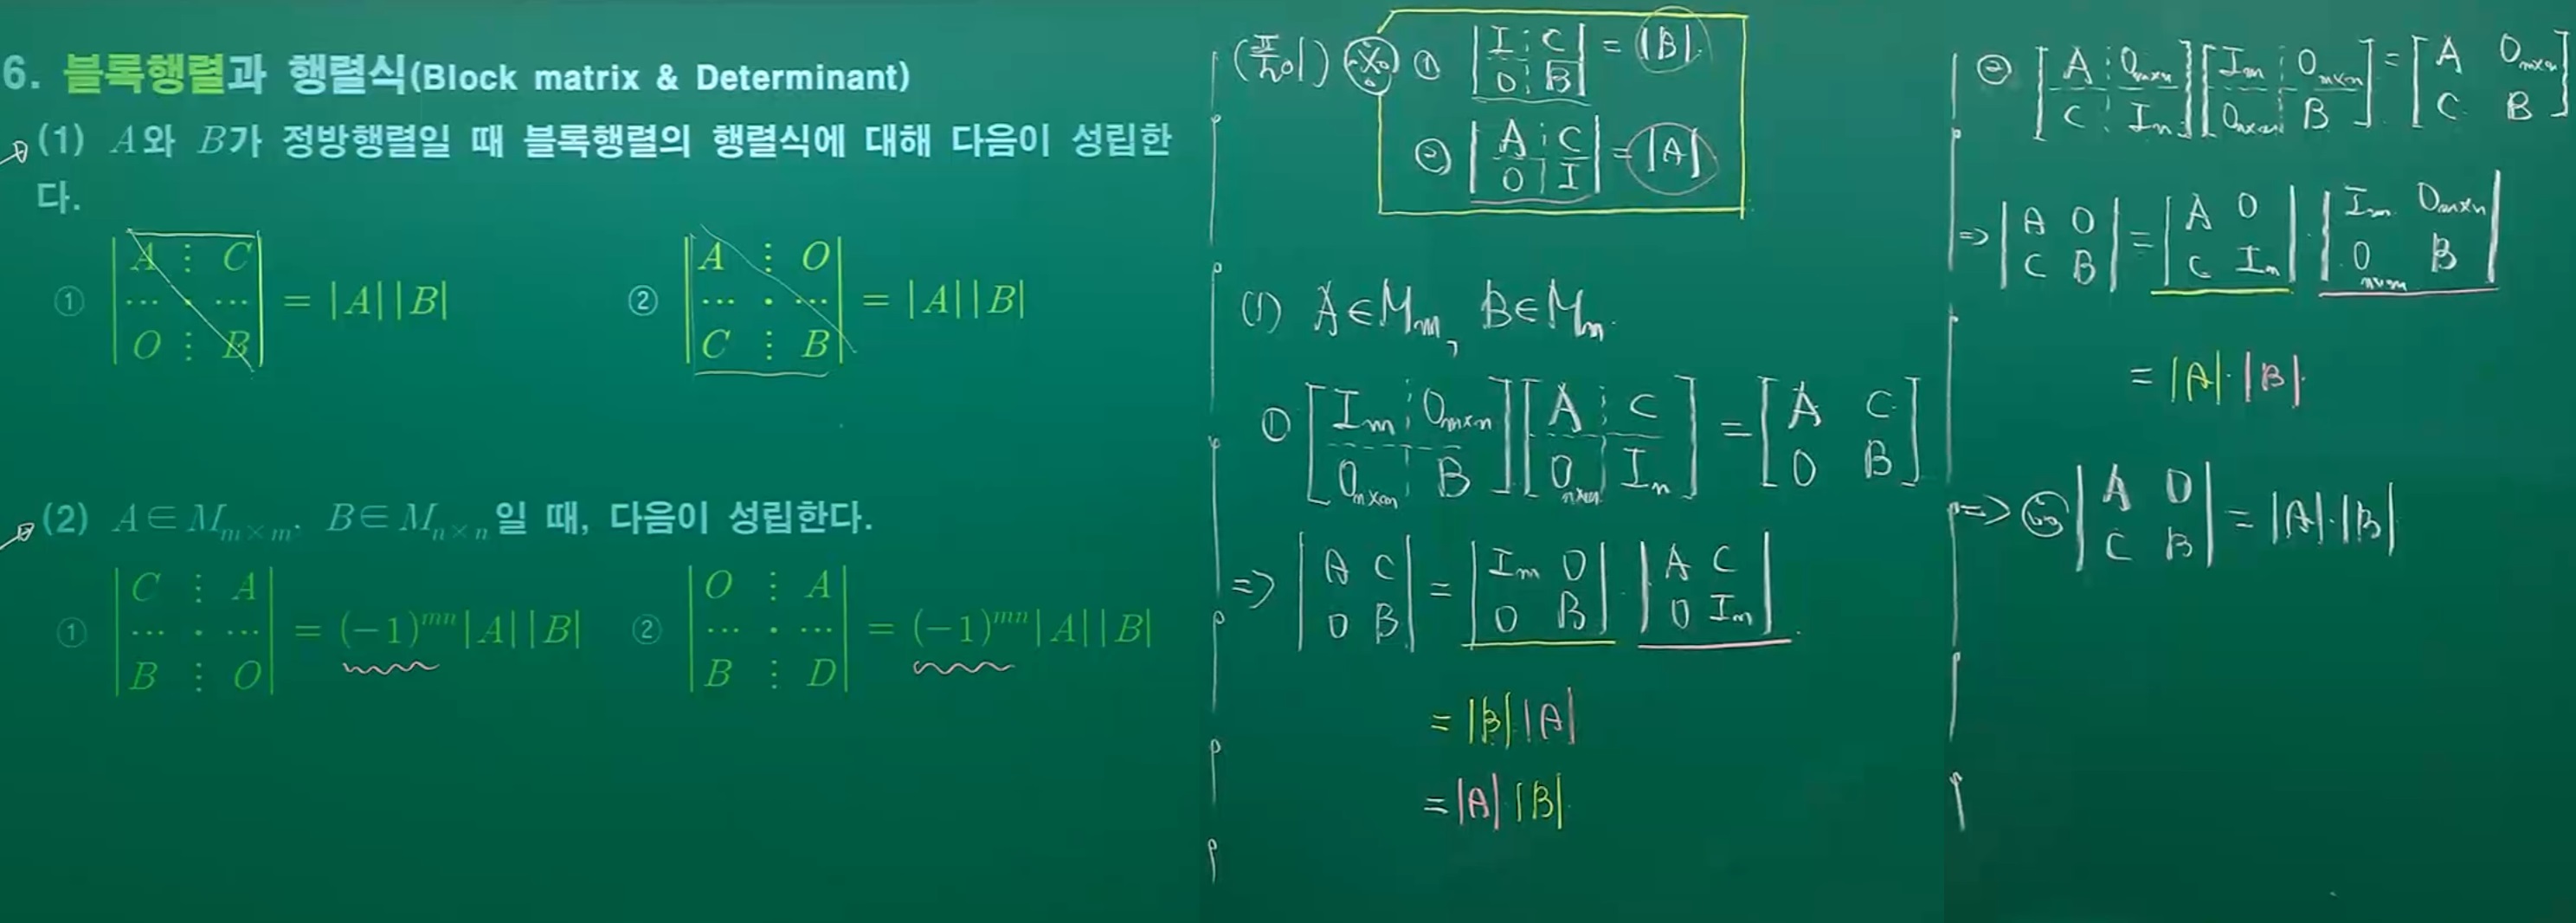 6. 블록행렬과 행렬식(Block matrix & Determinant)
(1) A와 B가 정방행렬일 때 블록행렬의 행렬식에 대해 다음이 성립한
다.
① | A ⋮ C ; ⋯ · ⋯ ; O ⋮ B | = |A||B|
② | A ⋮ O ; ⋯ · ⋯ ; C ⋮ B | = |A||B|
(2) A∈M_{m×m}. B∈M_{n×n}일 때, 다음이 성립한다.
① | C ⋮ A ; ⋯ · ⋯ ; B ⋮ O | = (-1)^{mn}|A||B|
② | O ⋮ A ; ⋯ · ⋯ ; B ⋮ D | = (-1)^{mn}|A||B|
(풀이) ※ ① | I C ; O B | = |B|.
② | A C ; O I | = |A|
(1) A∈M_m, B∈M_n.
① [ I_m O_{m×n} ; O_{n×m} B ] [ A C ; O_{n×m} I_n ] = [ A C ; O B ]
⇒ | A C ; O B | = | I_m O ; O B | · | A C ; O I_n |.
= |B| |A|
= |A| |B|.
② [ A O_{m×n} ; C I_n ] [ I_m O_{m×n} ; O_{n×m} B ] = [ A O_{m×n} ; C B ]
⇒ | A O ; C B | = | A O ; C I_n | · | I_m O_{m×n} ; O_{n×m} B |
= |A|·|B|.
⇒ | A O ; C B | = |A|·|B|